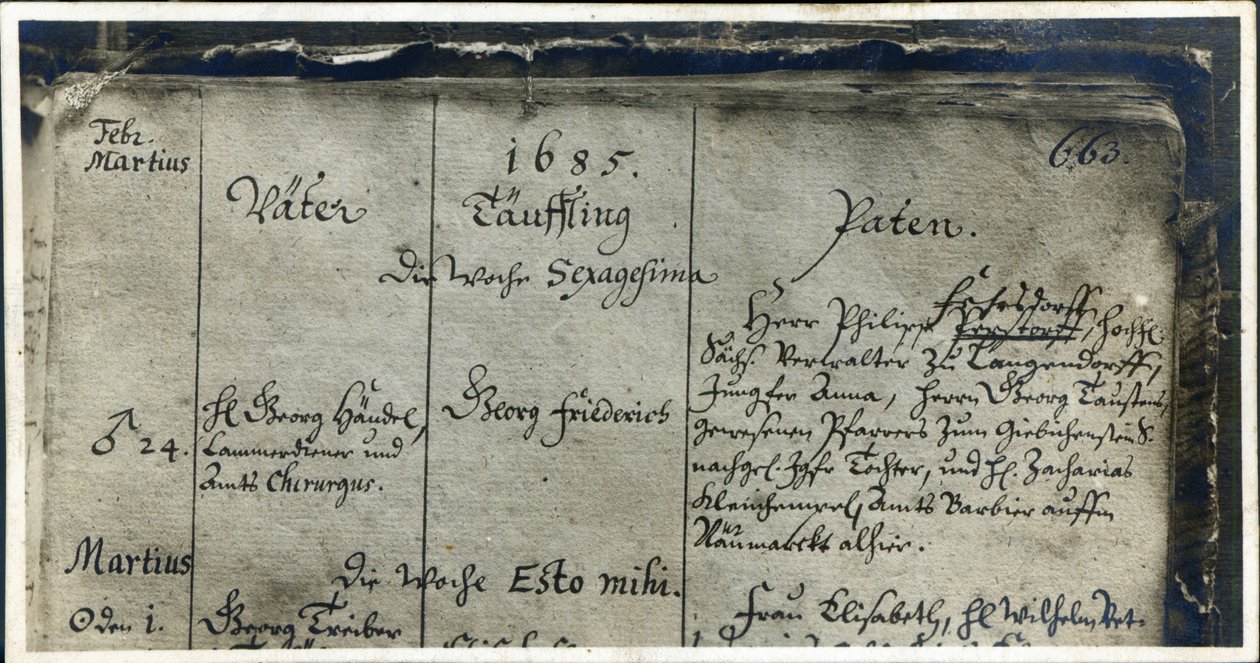 Febr.
Martius
1685.
663.
Väter
Täuffling
Paten.
Die Woche Sexagesima
Herr Philipp Fehrsdorff, Hochfl.
Sächs. Verwalter zu Langendorff,
Jungfer Anna, Herrn Georg Taustens,
gewesenen Pfarrers zum Giebichenstein S.
nachgel. Jgfr Tochter, und H. Zacharias
Kleinhempel, Amts Barbier auffm
Näumarckt alhier.
♂ 24.
H Georg Händel,
Cammerdiener und
Amts Chirurgus.
Georg Friederich
Martius
Die Woche Esto mihi.
☉ den 1.
Georg Treiber
Frau Elisabeth, H Wilhelm Vet-